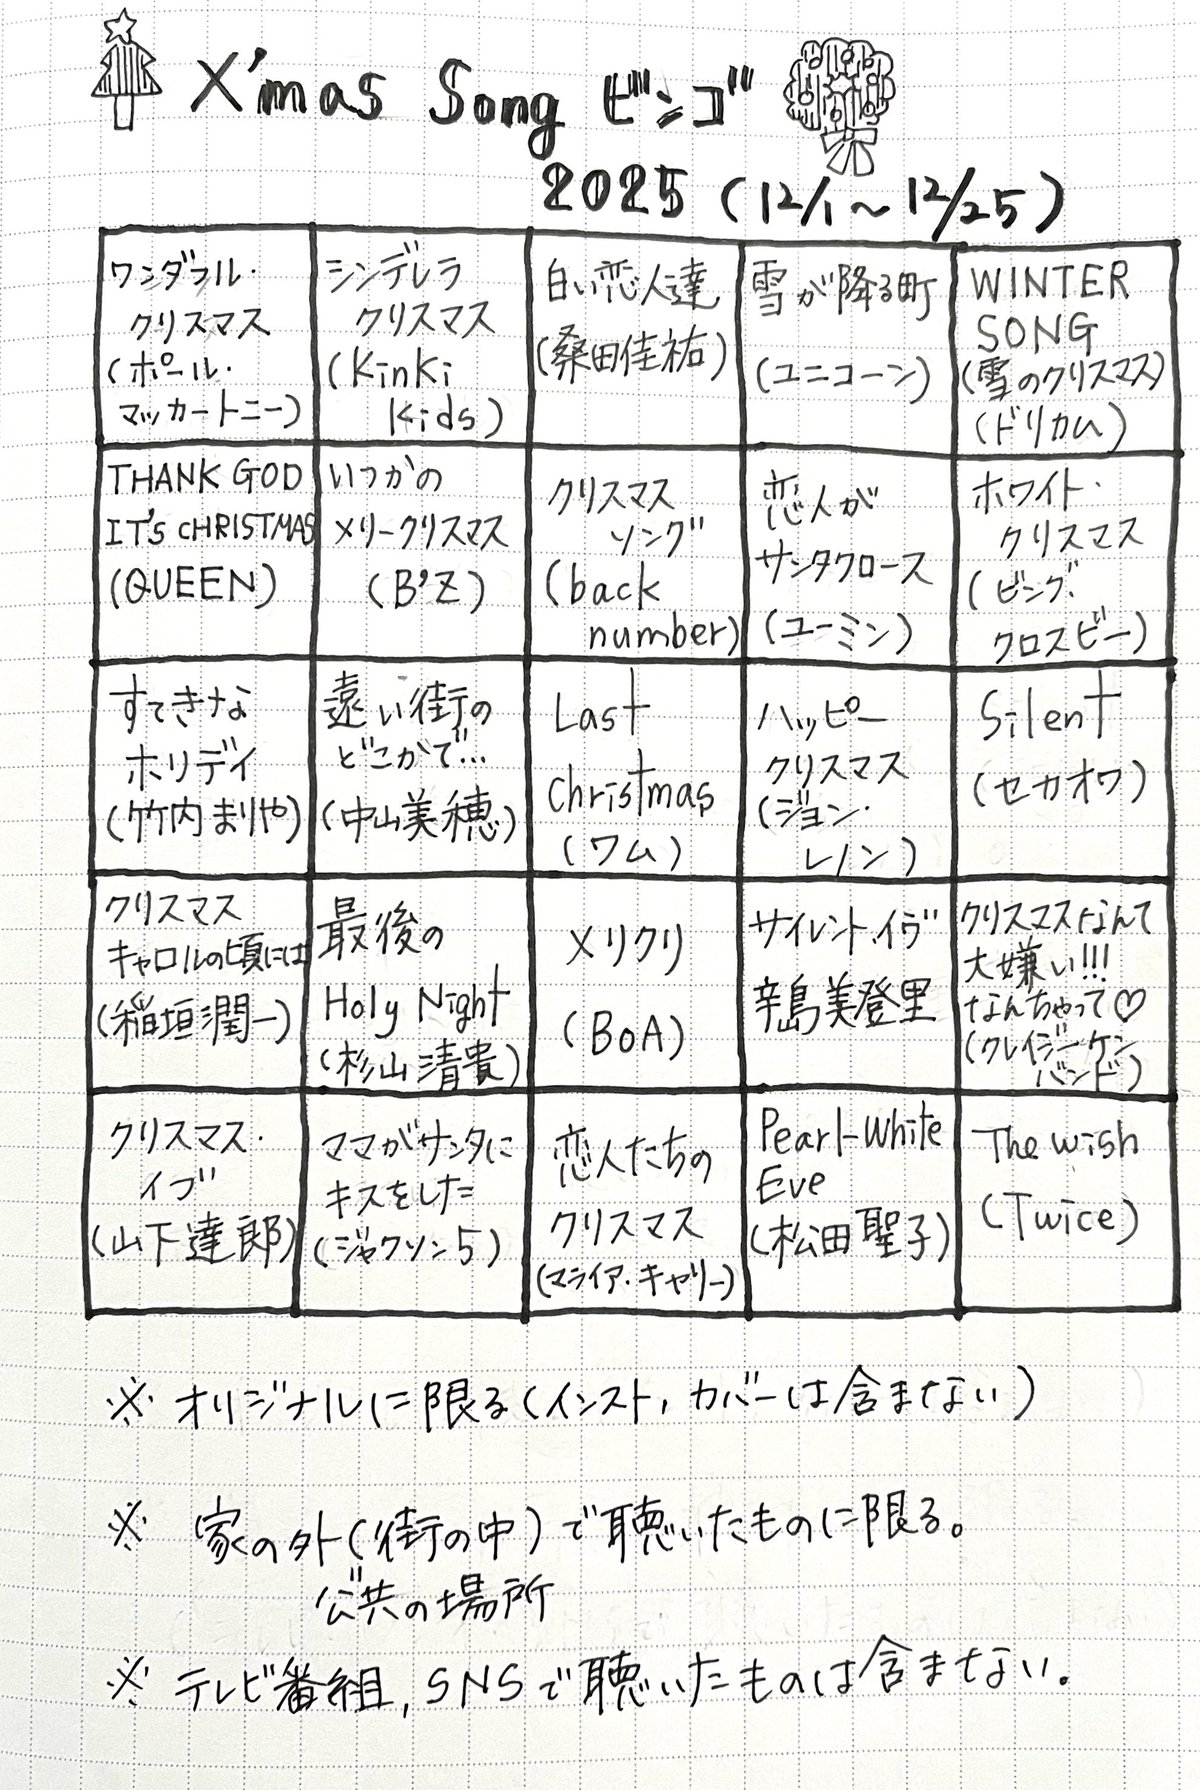 X'mas Song ビンゴ
2025 (12/1〜12/25)
ワンダフル・
クリスマス
(ポール・
マッカートニー)
シンデレラ
クリスマス
(Kinki
Kids)
白い恋人達
(桑田佳祐)
雪が降る町
(ユニコーン)
WINTER
SONG
(雪のクリスマス)
(ドリカム)
THANK GOD
IT'S CHRISTMAS
(QUEEN)
いつかの
メリークリスマス
(B'Z)
クリスマス
ソング
(back
number)
恋人が
サンタクロース
(ユーミン)
ホワイト・
クリスマス
(ビング・
クロスビー)
すてきな
ホリデイ
(竹内まりや)
遠い街の
どこかで…
(中山美穂)
Last
Christmas
(ワム)
ハッピー
クリスマス
(ジョン・
レノン)
Silent
(セカオワ)
クリスマス
キャロルの頃には
(稲垣潤一)
最後の
Holy Night
(杉山清貴)
メリクリ
(BoA)
サイレント・イヴ
辛島美登里
クリスマスなんて
大嫌い!!!
なんちゃって♡
(クレイジーケン
バンド)
クリスマス・
イブ
(山下達郎)
ママがサンタに
キスをした
(ジャクソン5)
恋人たちの
クリスマス
(マライア・キャリー)
Pearl-White
Eve
(松田聖子)
The wish
(Twice)
※ オリジナルに限る(インスト, カバーは含まない)
※ 家の外(街の中)で聴いたものに限る。
公共の場所
※ テレビ番組, SNSで聴いたものは含まない.